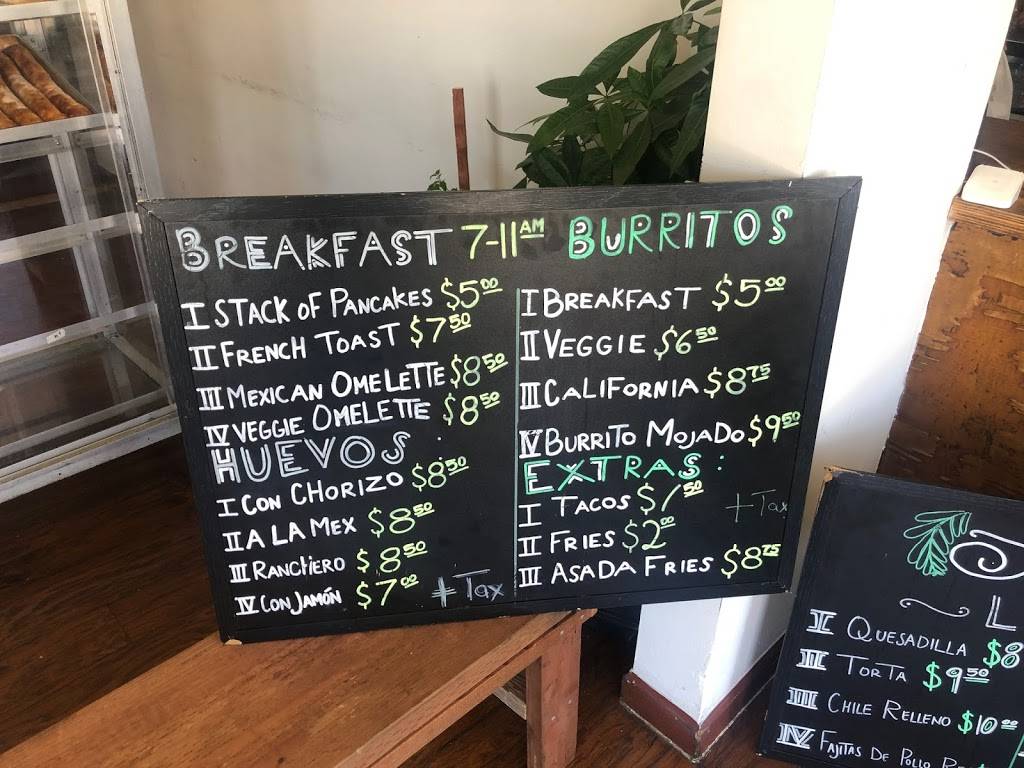 BREAKFAST 7-11 AM
I STACK OF PANCAKES $5.00
II FRENCH TOAST $7.50
III MEXICAN OMELETTE $8.50
IV VEGGIE OMELETTE $8.50
HUEVOS
I CON CHORIZO $8.50
II A LA MEX $8.50
III RANCHERO $8.50
IV CON JAMÓN $7.00
+ Tax
BURRITOS
I BREAKFAST $5.00
II VEGGIE $6.50
III CALIFORNIA $8.75
IV BURRITO MOJADO $9.50
EXTRAS:
I TACOS $1.50
+ Tax
II FRIES $2.00
III ASADA FRIES $8.75
I QUESADILLA $8
II TORTA $9.50
III CHILE RELLENO $10.00
IV FAJITAS DE POLLO